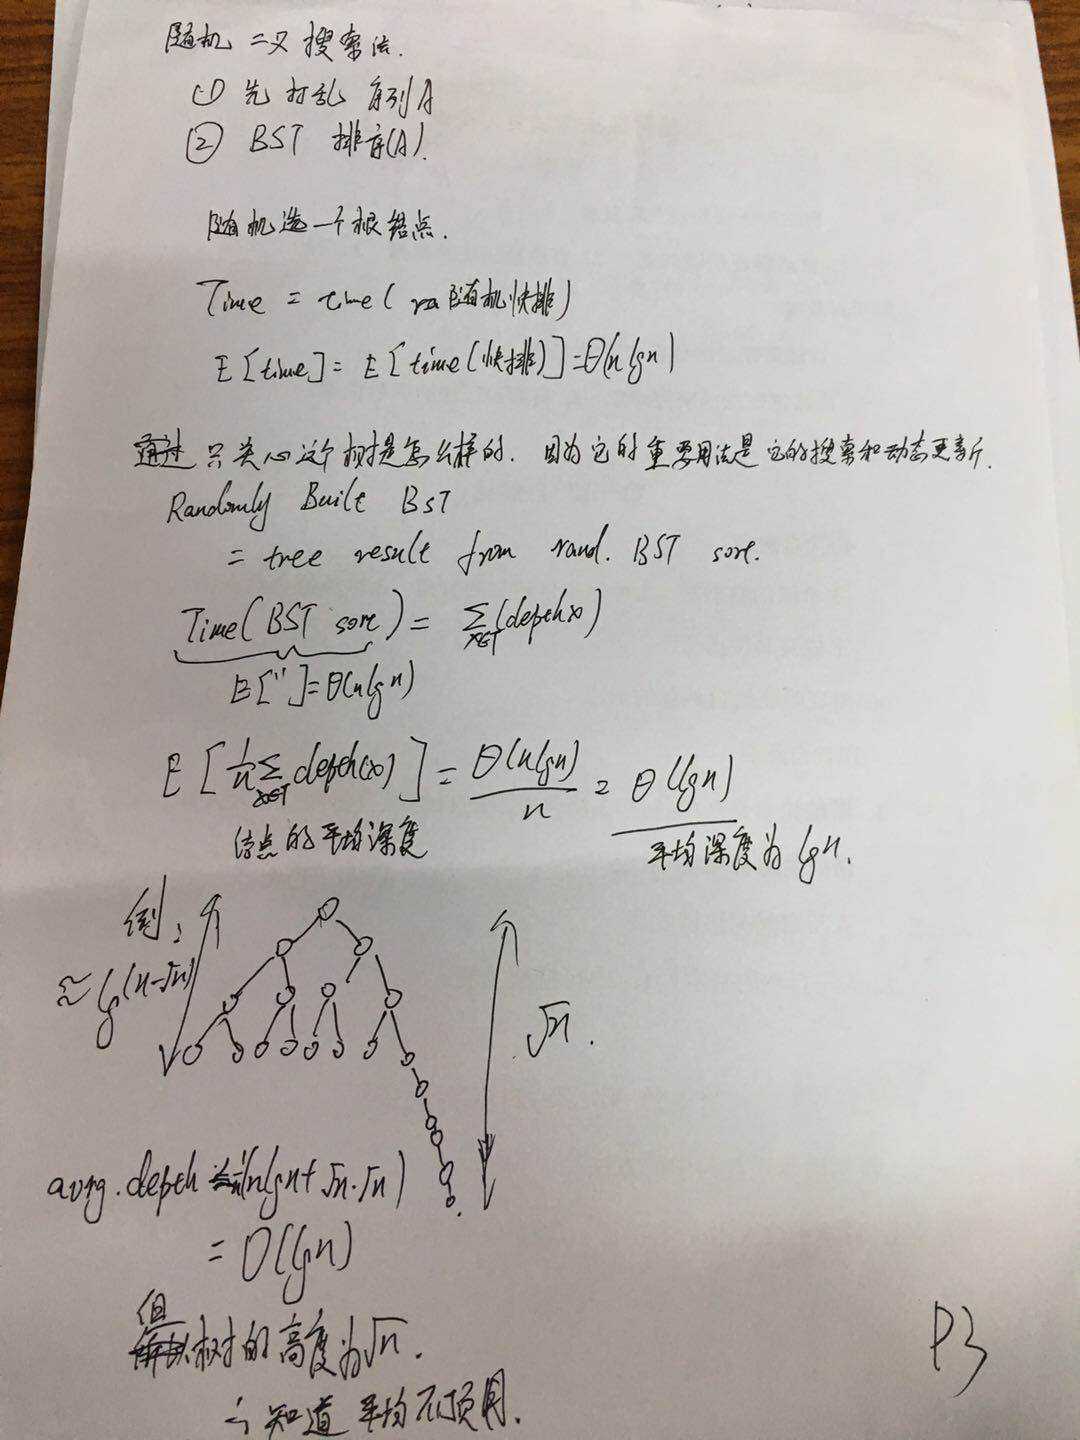 随机二叉搜索法.
① 先打乱序列A
② BST 排序(A).
随机选一个根结点.
Time = time( ra随机快排)
E[time] = E[time(快排)]=Θ(n lgn)
通过 只关心这个树是怎么样的. 因为它的重要用法是它的搜索和动态更新.
Randomly Built BST
= tree result from rand. BST sort.
Time(BST sort) = ∑(depth x)
x∈T
E["]=Θ(n lgn)
E[1/n ∑ depth(x)] = Θ(n lgn)/n = Θ(lgn)
x∈T
结点的平均深度
平均深度为 lgn.
例:
≈ lg(n-√n)
√n.
avrg.depth ≤ 1/n(n lgn + √n·√n)
= O(lgn)
但
树的高度为√n.
∴ 知道平均不顶用.
P3